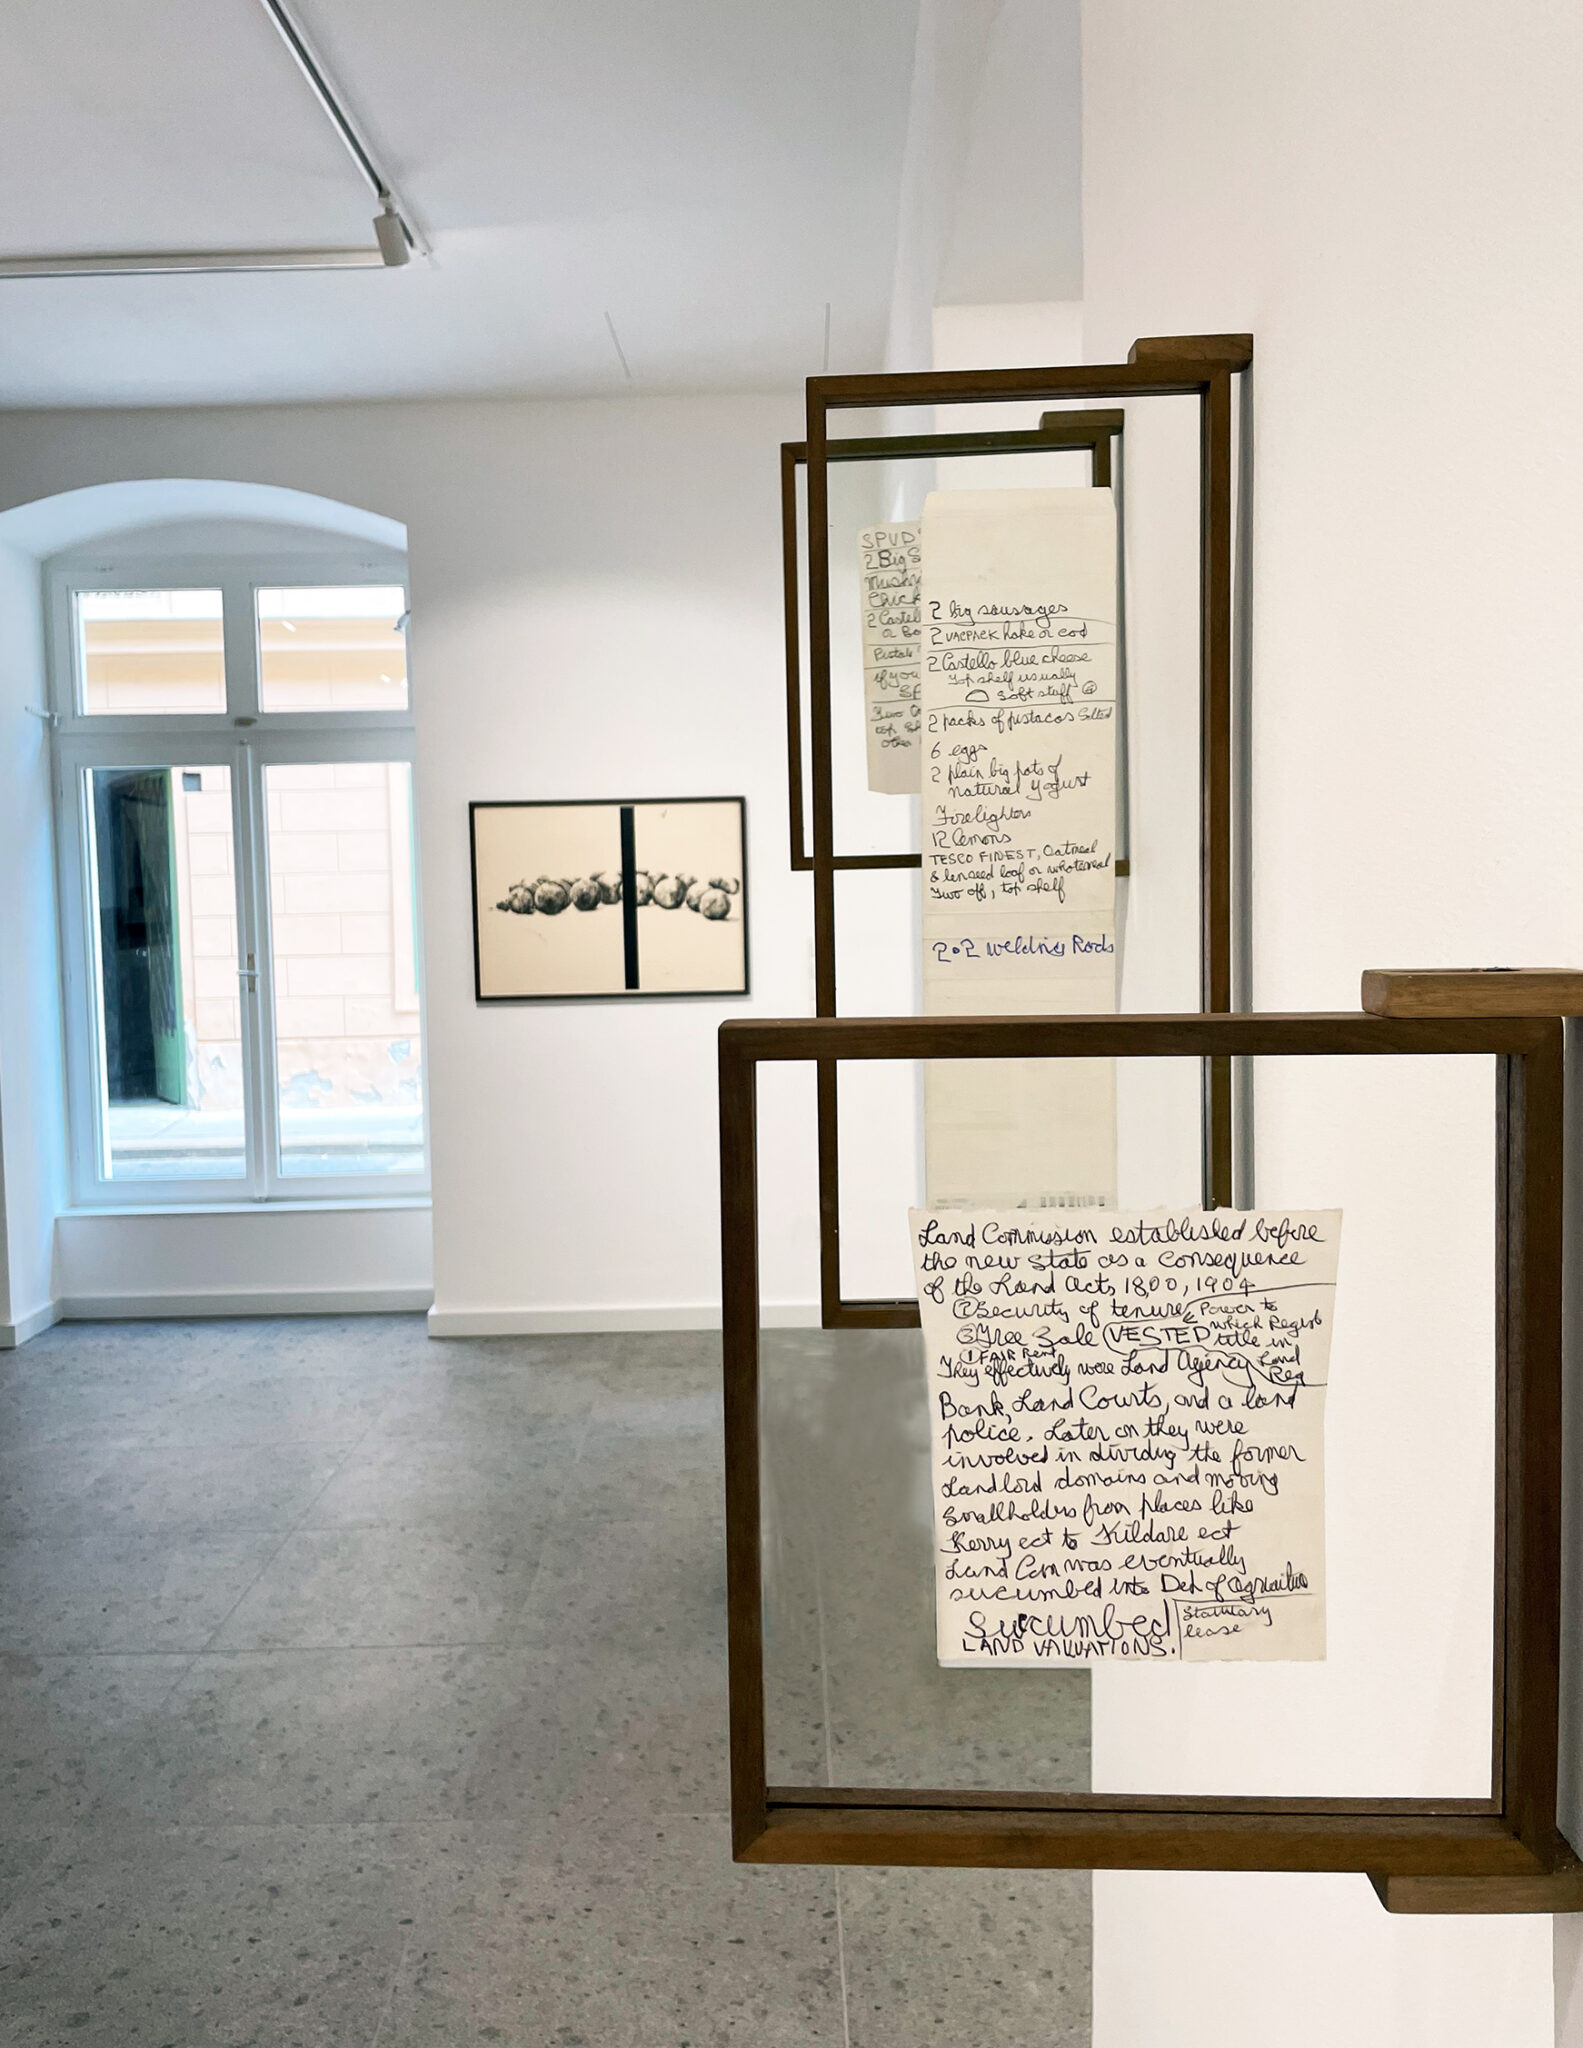 SPUD
2 Big S
Mush
Chick
2 Castel
or Bo
if you
SE
Two
top Sh
other
2 big sausages
2 VACPACK hake or cod
2 Castello blue cheese
Top shelf usually
soft stuff
2 packs of pistacos Salted
6 eggs
2 plain big pots of
natural yogurt
Firelighters
12 lemons
TESCO FINEST, Oatmeal
& linseed loaf or wholemeal
Two off, top shelf
2•2 welding Rods
Land Commission established before
the new State as a Consequence
of the Land Acts 1800, 1904
② Security of tenure Power to
which Regist
③ Free Sale VESTED title in
① FAIR Rent
They effectively were Land Agency Land
Reg
Bank, Land Courts, and a land
police. Later on they were
involved in dividing the former
Landlord domains and moving
Smallholders from places like
Kerry ect to Kildare ect
Land Com was eventually
sucumbed into Det of
Sucumbed Statutary
lease
LAND VALUATIONS.